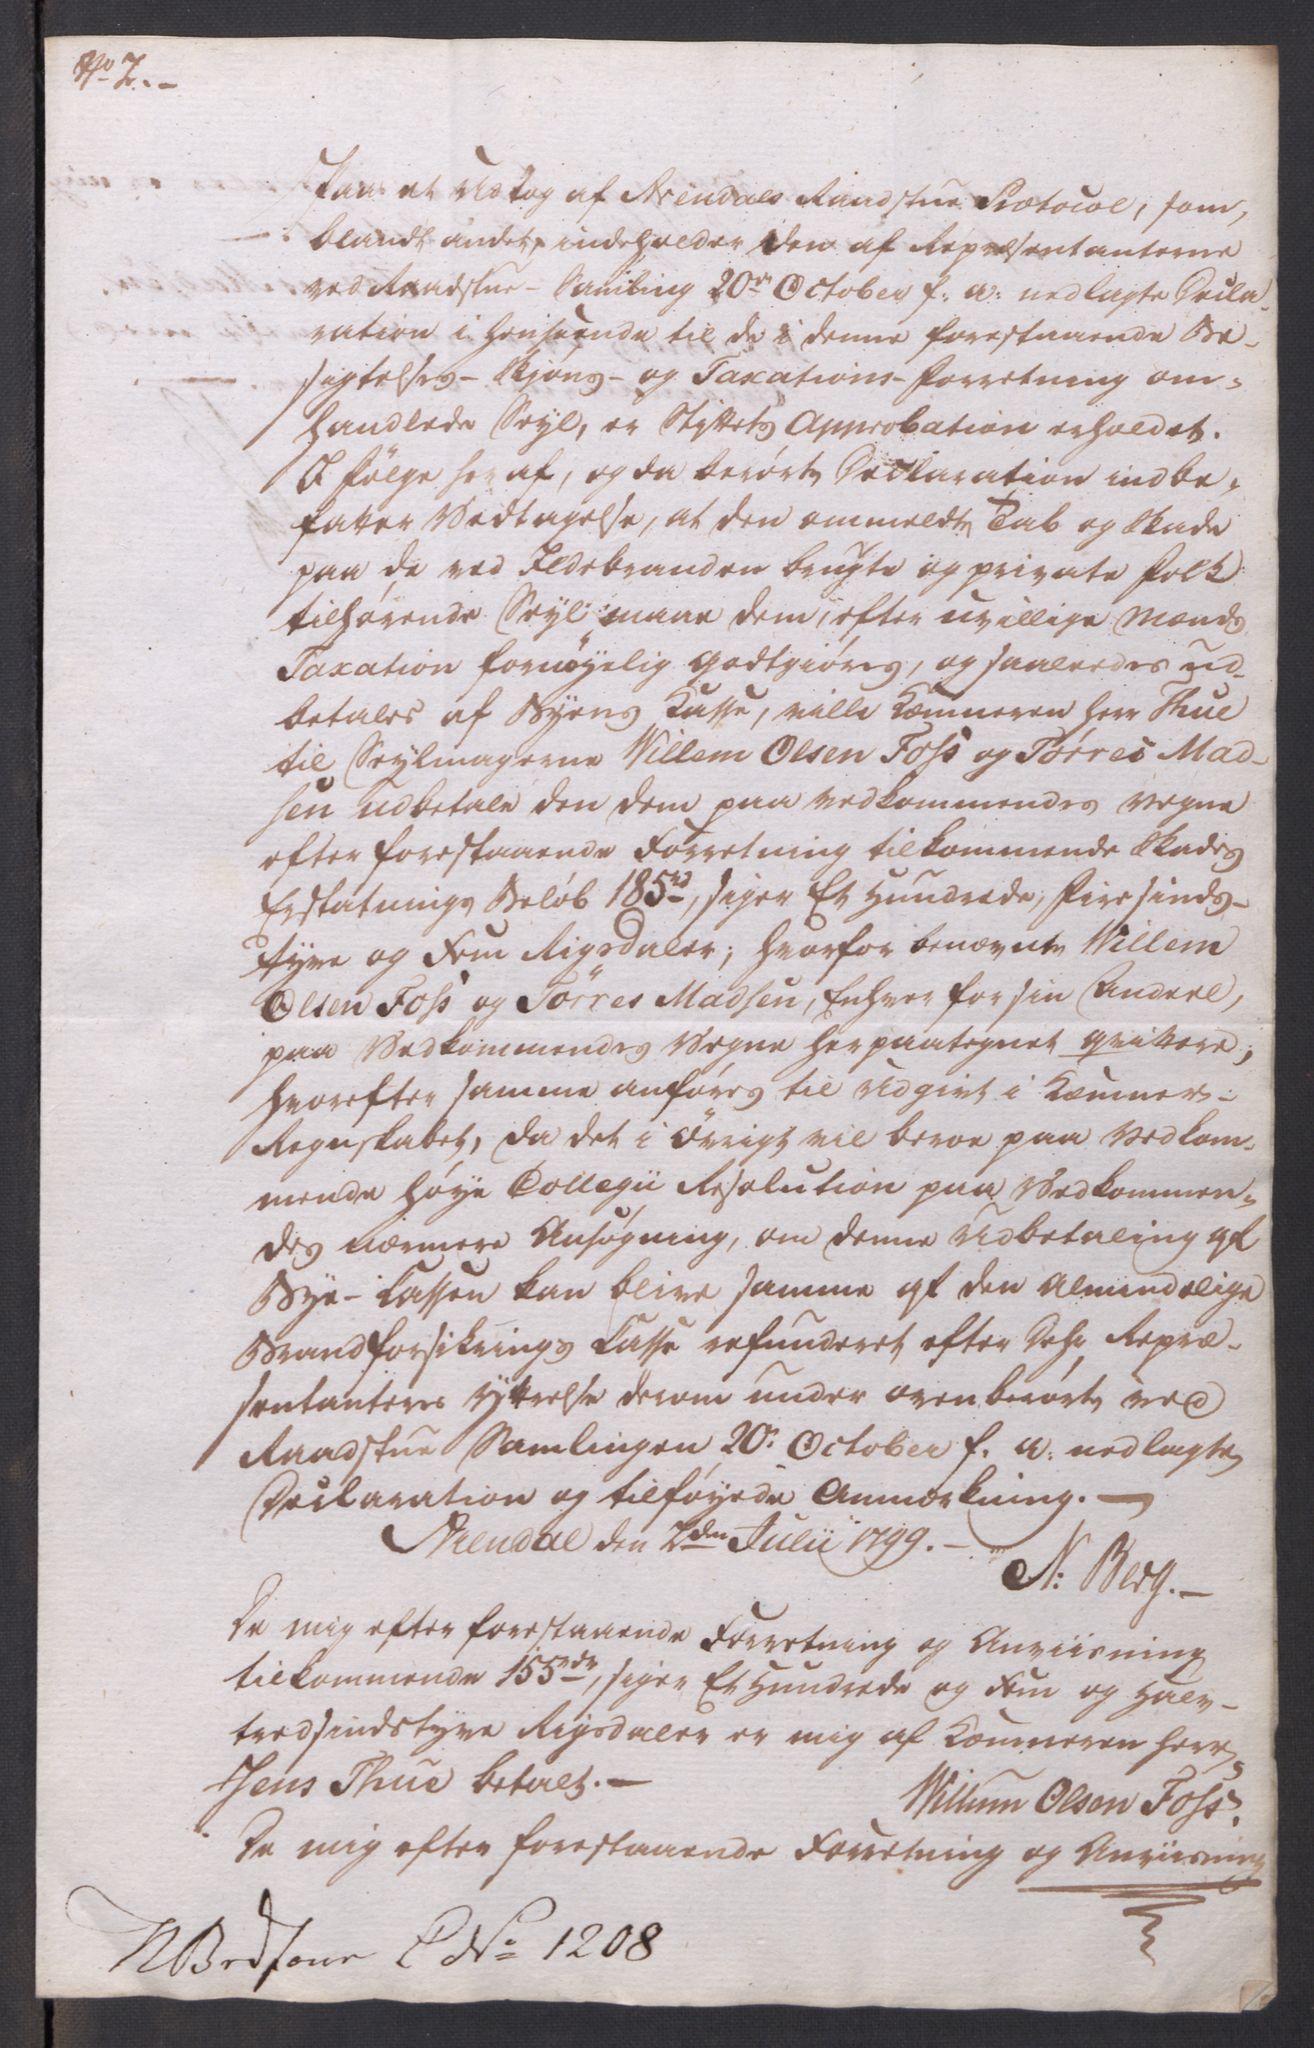 No 7.-
Paa et Udtog af Arendals Raadstue Protocol, som,
blandt andet, indeholder den af Repræsentanterne
ved Raadstue-Samling 20de October f: a: nedlagte Decla-
ration i Henseende til de i denne forestaaende Be-
sigtelses- Skjøns- og Taxations-Forretning om-
handlede Seyl, er Stiftets Approbation erholdet.
I følge heraf, og da berørte Declaration indbe-
fatter Vedtagelse, at den ommeldte Tab og Skade
paa de ved Ildebranden brugte og private Folk
tilhørende Seyl maae dem, efter uvillige Mænds
Taxation fornøyelig godtgiøres, og saaledes ud-
betales af Byens Casse, ville Kæmneren Herr Thue
til Seylmagerne Willem Olsen Foss og Törres Mad-
sen udbetale den dem paa Vedkommendes Vegne
efter forestaaende Forretning tilkommende Skades
Erstatnings Beløb 185rd, siger Et Hundrede, Firesinds-
tyve og Fem Rigsdaler; hvorfor benævnte Willem
Olsen Foss og Törres Madsen, Enhver for sin Andeel,
paa Vedkommendes Vegne herpaategnet qvittere;
hvorefter samme anføres til Udgivt i Kæmner-
Regnskabet, da det i Övrigt vil beroe paa Vedkom-
mende høye Collegii Resolution paa Vedkommen-
des nærmere Ansøgning, om denne Udbetaling af
Bye-Cassen kan blive samme af den Almindelige
Brandforsikrings Casse refunderet efter Dhr Repræ-
sentanters Yttrelse derom under ovenberørte ved
Raadstue Samlingen 20. October f. a. nedlagte
Declaration og tilføyede Anmærkning.-
Arendal den 2den Julii 1799.-
N: Berg.-
De mig efter forestaaende Forretning og Anviisning
tilkommende 155rdr, siger Et Hundrede og Fem og Halv-
tredsindstyve Rigsdaler er mig af Kæmneren Herr
Jens Thue betalt.-
Willum Olsen Foss.
De mig efter forestaaende Forretning og Anviisning
No 1208